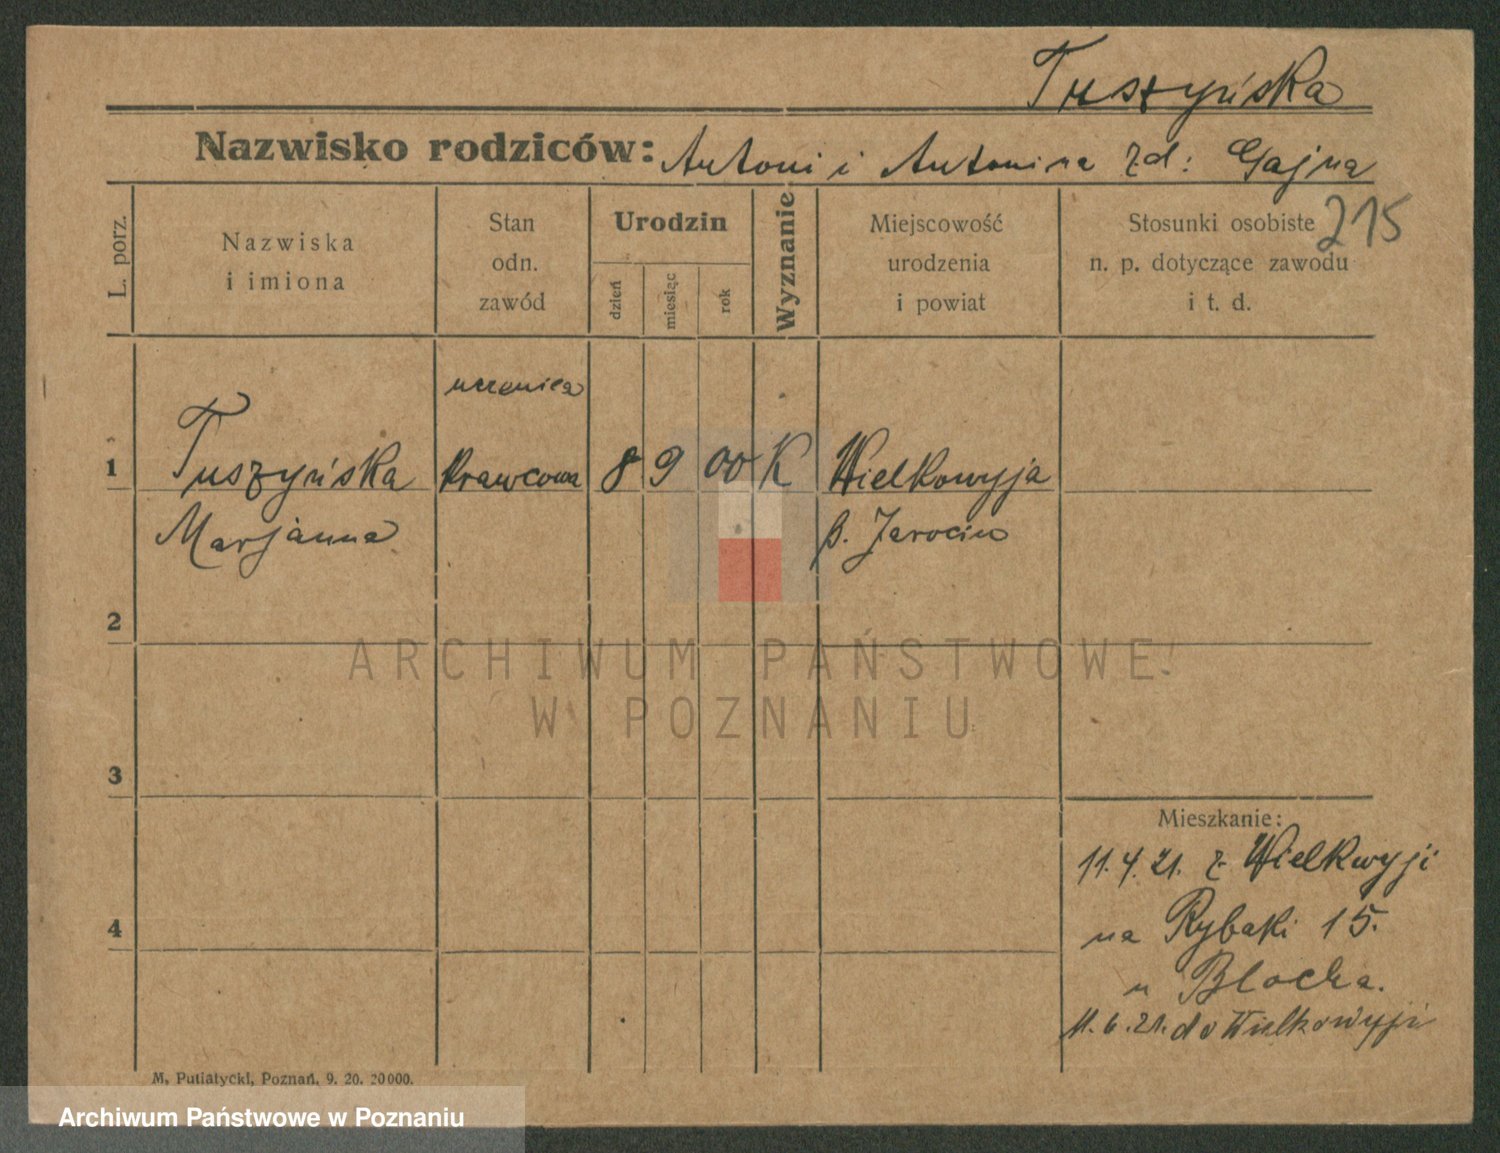 Tuszyńska
Nazwisko rodziców: Antoni i Antonina zd: Gajna
215
L. porz.
Nazwiska
i imiona
Stan
odn.
zawód
Urodzin
dzień
miesiąc
rok
Wyznanie
Miejscowość
urodzenia
i powiat
Stosunki osobiste
n. p. dotyczące zawodu
i t. d.
uczenica
1 Tuszyńska Krawcowa 8 9 00 K Wielkowyja
Marjanna p. Jarocin
2
ARCHIWUM PAŃSTWOWE
W POZNANIU
3
Mieszkanie:
11.4.21. z Wielkwyji
4 na Rybaki 15.
u Blocha.
11.6.21. do Wielkowyji
M. Putiatycki, Poznań, 9. 20. 20000.
Archiwum Państwowe w Poznaniu